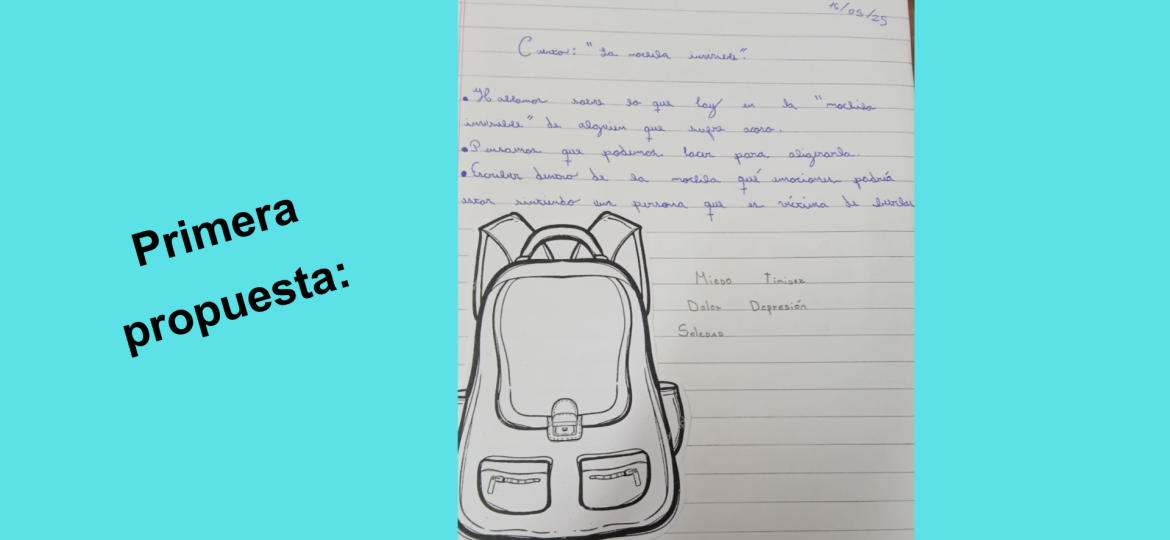 Primera
propuesta:
15/05/25
Cuento: "La mochila invisible".
• Hablamos sobre lo que hay en la "mochila
invisible" de alguien que sufre acoso.
• Pensamos que podemos hacer para aligerarla.
• Escribir dentro de la mochila qué emociones podría
estar sintiendo una persona que es víctima de burlas
Miedo Timidez
Dolor Depresión
Soledad